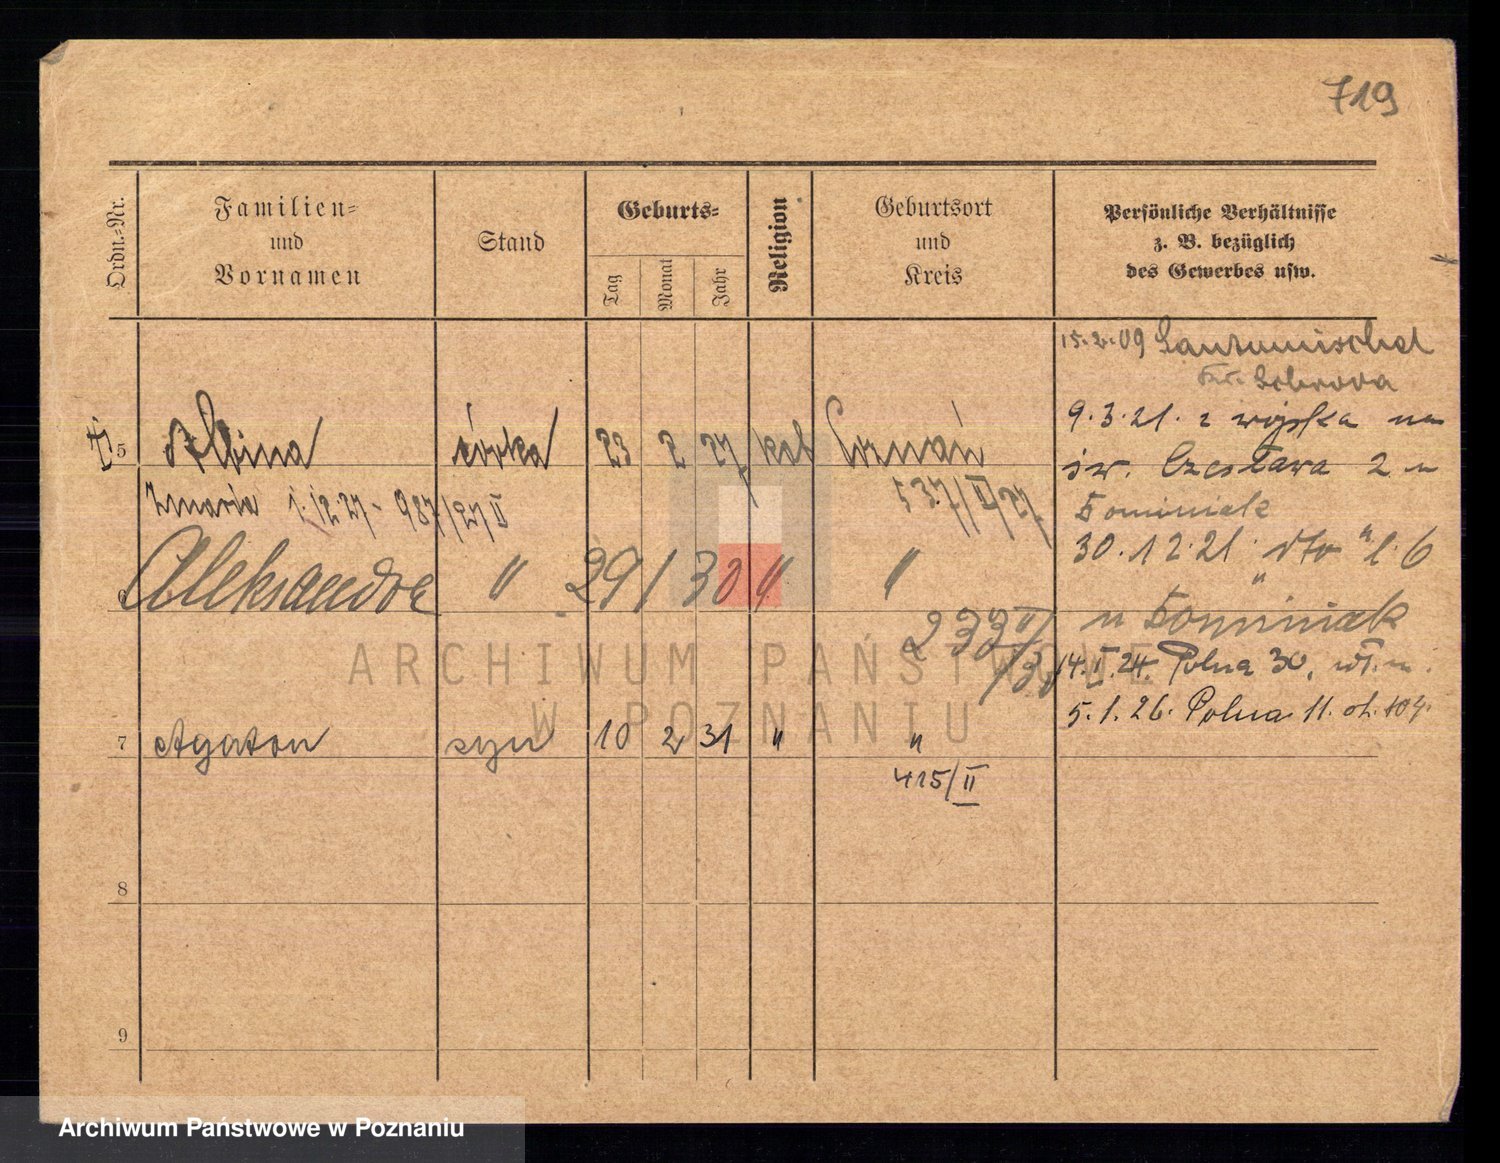 719
Ordn.-Nr.
Familien-
und
Vornamen
Stand
Geburts-
Tag
Monat
Jahr
Religion
Geburtsort
und
Kreis
Persönliche Verhältnisse
z. B. bezüglich
des Gewerbes usw.
15.2.09
9.3.21. z wojska na
św. Czesława 2 u
Dominiak
30.12.21 dto " l. 6
u Dominiak
14.II.24. Polna 30, wł. m.
5.1.26. Polna 11.
5 Albina córka 23 2 27 kat Poznań
Zmarła 1.12.27 - 987/27/II 537/II/27
6 Aleksandra " 29 1 30 " "
233 II/30
7 Agaton syn 10 2 31 " "
415/II
8
9
ARCHIWUM PAŃSTWOWE
W POZNANIU
Archiwum Państwowe w Poznaniu